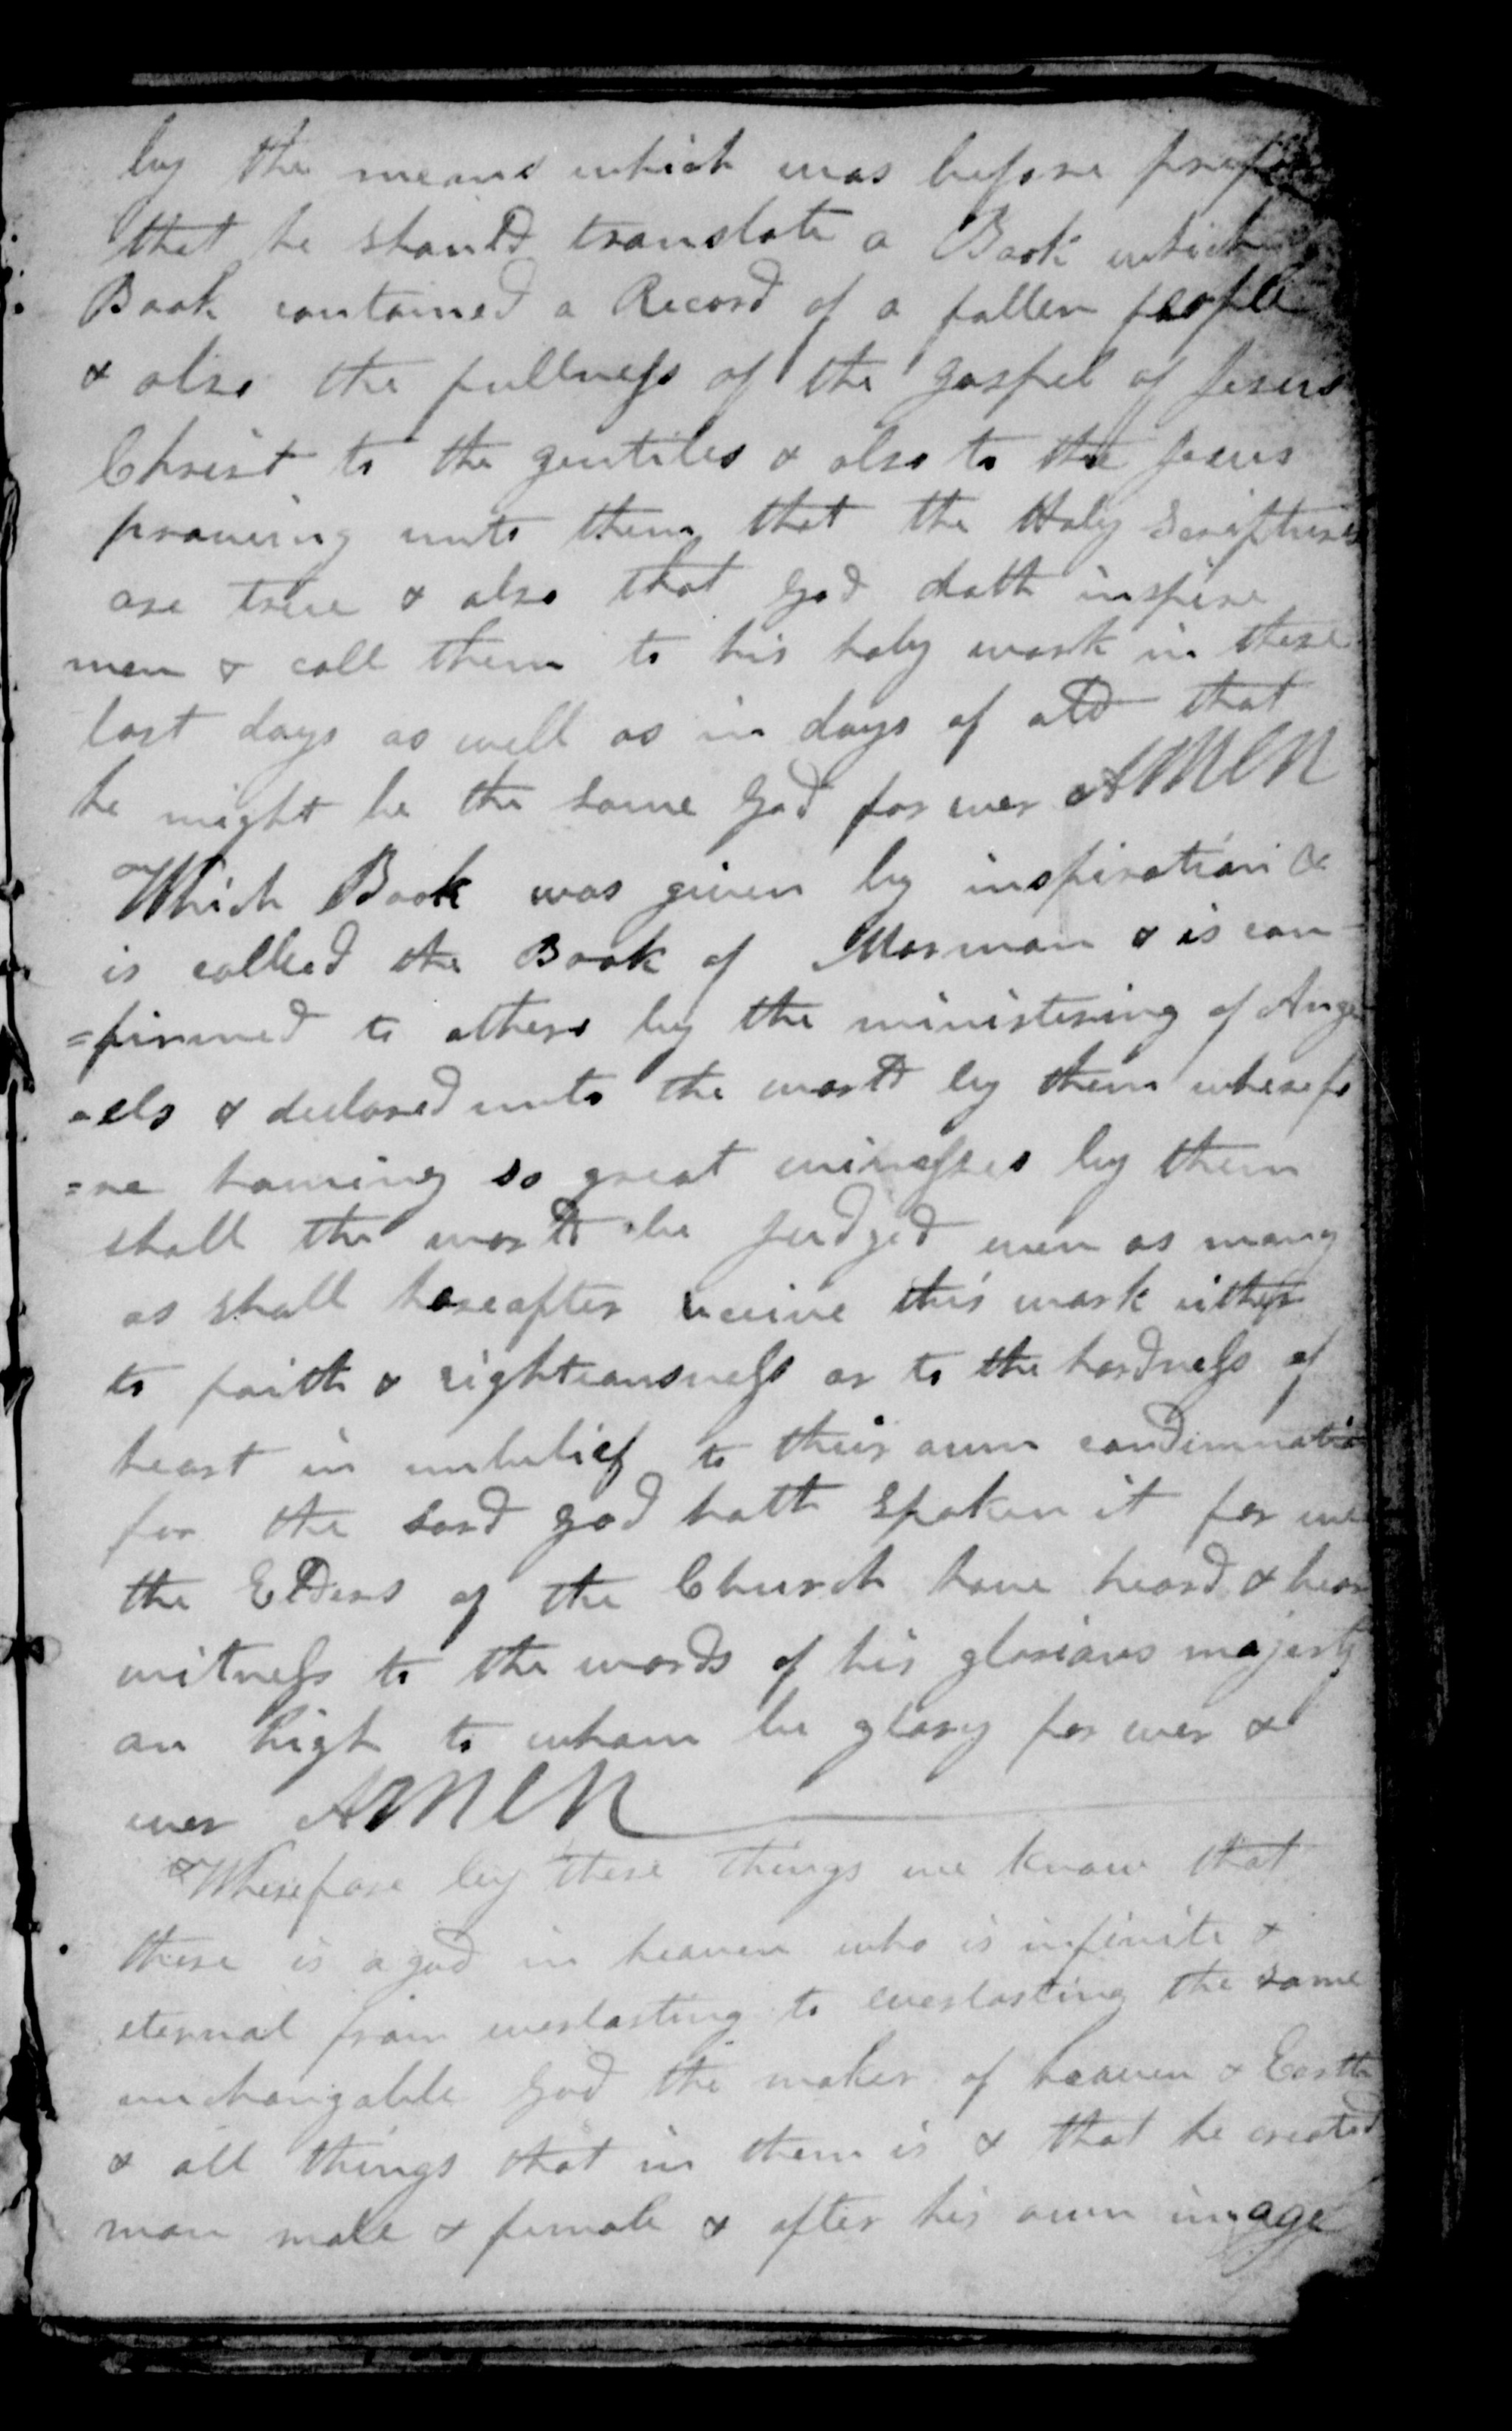 by the means which was before
that he should translate a Book which
Book contained a Record of a fallen people
& also the fullness of the gospel of Jesus
Christ to the gentiles & also to the Jews
proveing unto them that the Holy Scriptures
are true & also that God doth inspire
men & call them to his holy work in these
last days as well as in days of old that
he might be the same God forever AMEN
Which Book was given by inspiration &
is called the Book of Mormon & is con-
=firmed to others by the ministering of Ange
-els & declared unto the world by them wherefo
=re haveing so great witnesses by them
shall the world be judged even as many
as shall hereafter receive this work either
to faith & righteousness or to the hardness of
heart in unbelief to their own condemnation
for the Lord God hath spoken it for we
the Elders of the Church have heard & bear
witness to the words of his glorious majesty
on high to whom be glory for ever &
ever AMEN
& Wherefore by these things we know that
there is a god in heaven who is infinite &
eternal from everlasting to everlasting the same
unchangable God the maker of heaven & Earth
& all things that in them is & that he created
man male & female & after his own image